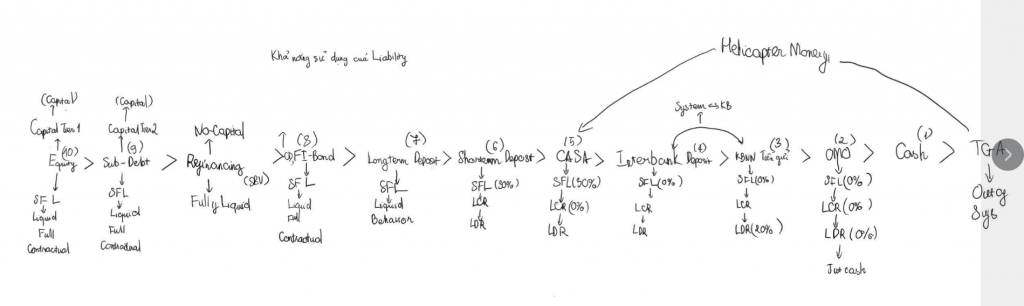 Helicopter Money
Khả năng sử dụng của Liability
(Capital)
(Capital)
System ↔ KB
Capital Tier 1
Capital Tier 2
No-Capital
(10)
(9)
(8)
(7)
(6)
(5)
(4)
(3)
(2)
(1)
Equity > Sub-Debt > Refinancing > FI-Bond > Longterm Deposit > Shorterm Deposit > CASA > Interbank Deposit > KBNN Tiền gửi > OMO > Cash > TGA
(SBV)
SFL
SFL
Fully Liquid
SFL
SFL
SFL (90%)
SFL (50%)
SFL (0%)
SFL (0%)
SFL (0%)
Out of
Sys
Liquid
Liquid
Liquid
Liquid
LCR
LCR (0%)
LCR
LCR
LCR (0%)
Full
Full
Full
Behavior
LDR
LDR
LDR
LDR (20%)
LDR (0%)
Contractual
Contractual
Contractual
Just cash